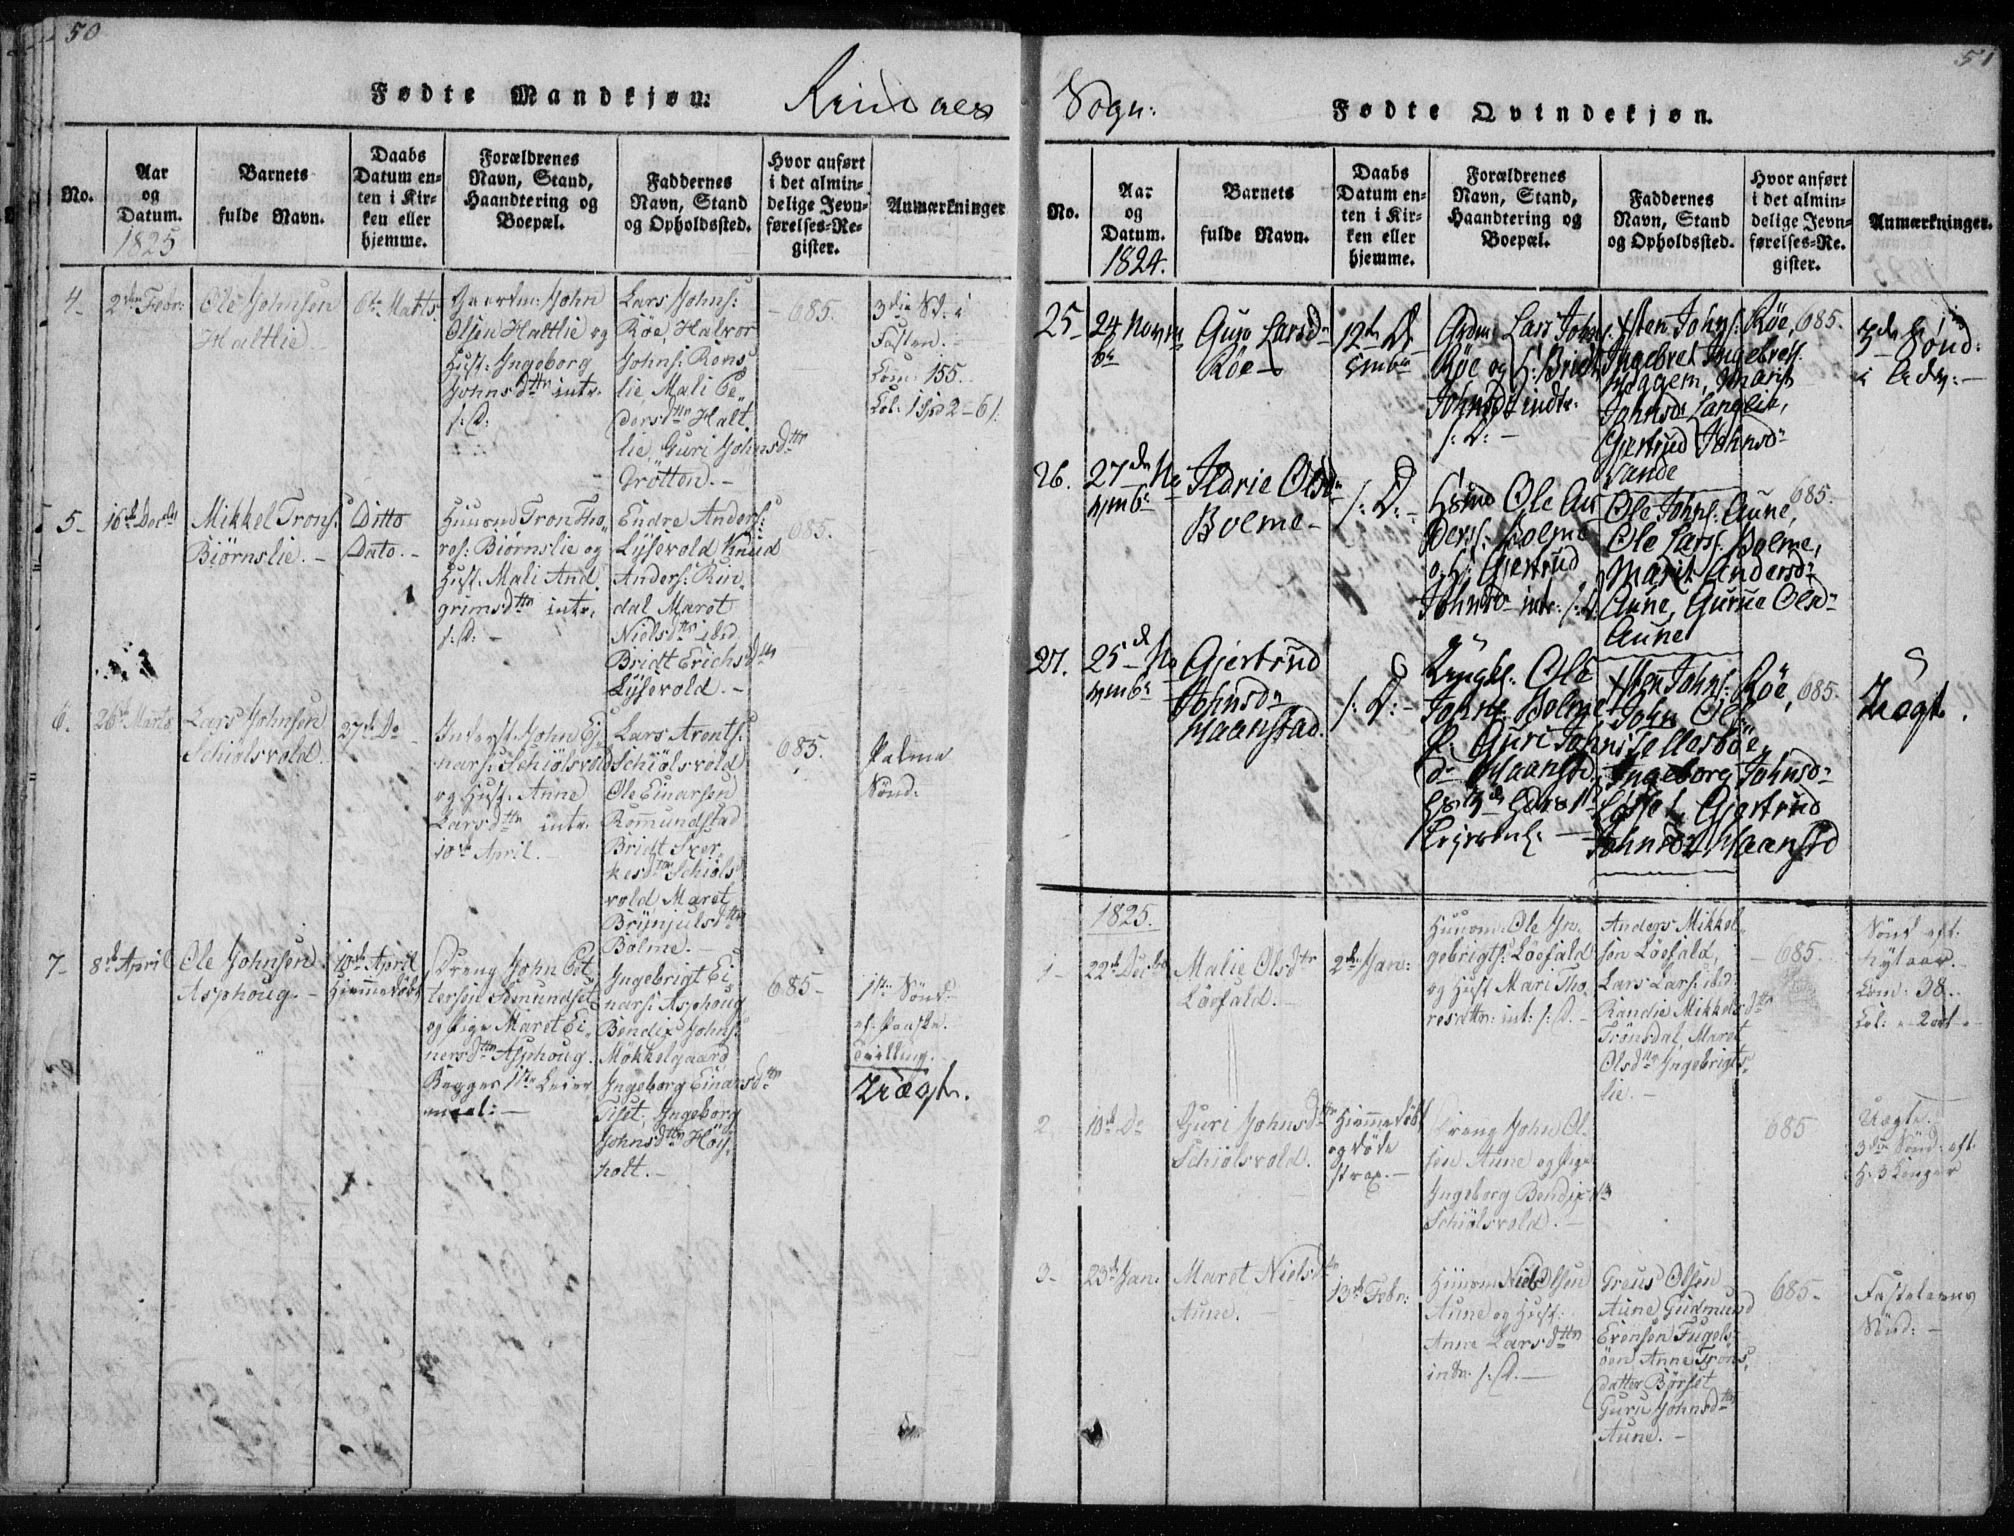 50
Fødte Mandkjøn:
Rindals
No.
Aar
og
Datum.
1825
Barnets
fulde Navn.
Daabs
Datum en-
ten i Kir-
ken eller
hjemme.
Forældrenes
Navn, Stand,
Haandtering og
Boepæl.
Faddernes
Navn, Stand
og Opholdssted.
Hvor anført
i det almin-
delige Jevn-
førelses-Re-
gister.
Anmærkninger
4-
2den Febr:
Ole Johnsen
Halttlie
6te Marts.
Gaardm: John
Olsen Halttlie og
Hust: Ingeborg
Johnsdttr intr.
s: D:
Lars Johns:
Røe, Halvor
Johns: Røns
lie Mali Pe-
dersdttr Halt
lie, Guri Johnsdttr
Trötten.-
685.
3die Sd: i
Fasten.-
Com: 155.
5-
16de Decbr
Mikkel Trons:
Biørnslie.-
Ditto
Dato.-
Huusmd Tron Tho-
res: Biørnslie og
Hust: Mali And
grimsdttr intr.
s: D:-
Endre Anders:
Lÿsevold Knud
Anders: Rin
dal Marot
Nielsdttr ibid
Bridt Erichsdttr
Lÿsevold.-
685.
6.
26de Marts
Lars Johnsen
Schiølsvold.
27de Do
Inderst John Ej
nars: Schiölsvold
og Hust: Anne
Larsdttr intr.
10de April.-
Lars Arents:
Schiölsvold
Ole Einarsen
Romundstad
Bridt Sver
kesdttr Schiöls
vold Maret
Brÿnjulsdttr
Bolme.-
685.
Palma
Sönd:
7-
8de April
Ole Johnsen
Asphoug.-
10de April
Hiemmedöbt
Dreng John Pet
tersen Romundset
og Pige Maret Ei-
nersdttr Asphoug.
Begges 1ste Leier
maal:-
Ingebrigt Ei
nars: Asphoug
Bendix Johns:
Møkkelgaard
Ingeborg Einarsdttr
Tiset, Ingeborg
Johnsdttr Höÿ
holt.-
685-
1ste Sönd-
ef: Paaske.
Tvilling.
Uægte.
51
Sogn:
Fødte Qvindekjøn.
No.
Aar
og
Datum.
1824.
Barnets
fulde Navn.
Daabs
Datum en-
ten i Kir-
ken eller
hjemme.
Forældrenes
Navn, Stand,
Haandtering og
Boepæl.
Faddernes
Navn, Stand
og Opholdssted.
Hvor anført
i det almin-
delige Jevn-
førelses-Re-
gister.
Anmærkninger.
25
24 Novem
br
Guro Larsdr
Røe-
12te De
cembr
Gdm: Lars Johns:
Røe og H: Bridt
Johnsdr indtr.
s: D:-
Sten Johns: Røe,
Ingebret Ingebrets:
Heggem, Marit
Johnsdr Langlie,
Gjertrud Johnsdr
Sande
685.
3de Sønd:
i Adv:-
26.
27de No
vembr
Ildrie Olsdr
Bolme-
s: D:-
Hsmd Ole An
ders: Bolme
og H: Gjertrud
Johnsdr intr: s: D:
Ole Johns: Aune,
Ole Lars: Bolme,
Marit Andersdr
Aune, Gurue Olsdr
Aune
685.
27.
25de No
vembr
Gjertrud
Johnsdr
Maanstad.
s: D:-
Ungkl: Ole
Johns: Bolme
P: Guri Johns
dr Maanstd
Sten Johns: Røe,
John Ols:
Tellesbøe,
Ingeborg Johnsdr
Gjertrud
Johnsdr Maanstd
685.
Uægte.
1825.
1-
22de Decbr
Malie Olsdttr
Löefald.-
2den Jan:
Huusm: Ole In-
gebrigts: Löefald
og Hust Mari Tho-
resdttr: int: s: D.-
Anders Mikkel-
sen Löefald,
Lars Lars: ibid:
Randie Mikkelsdttr
Trönsdal, Maret
Olsdttr Ingebrigts
lie.-
685-
Sönd eft
Nytaar.-
Com: 38.
2
10de Do
Guri Johnsdttr
Schiölsvold.
Hiemmedöbt
og döde
strax.-
Dreng John Ol-
sen Aune og Pige
Ingeborg Bendixdtr
Schiölsvold.-
685
Uægte.
3die Sönd: eft
H: 3 Konger
3-
23de Jan.
Maret Nielsdttr
Aune.
13de Febr:
Huusm: Niels Olsen
Aune og Hust:
Anne Larsdttr
indtr. s: D.-
Greus Olsen
Aune Gudmund
Evensen Fugels-
öen Anne Tröns
datter Börset
Guru Johnsdttr
Aune.-
685-
Fastelavns
Sönd:-